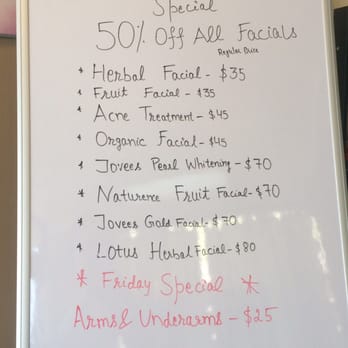 Special
50% Off All Facials
Regular Price
* Herbal Facial - $35
* Fruit Facial - $35
* Acne Treatment - $45
* Organic Facial - $45
* Jovees Pearl Whitening - $70
* Naturence Fruit Facial - $70
* Jovees Gold Facial - $70
* Lotus Herbal Facial - $80
* Friday Special *
Arms & Underarms - $25